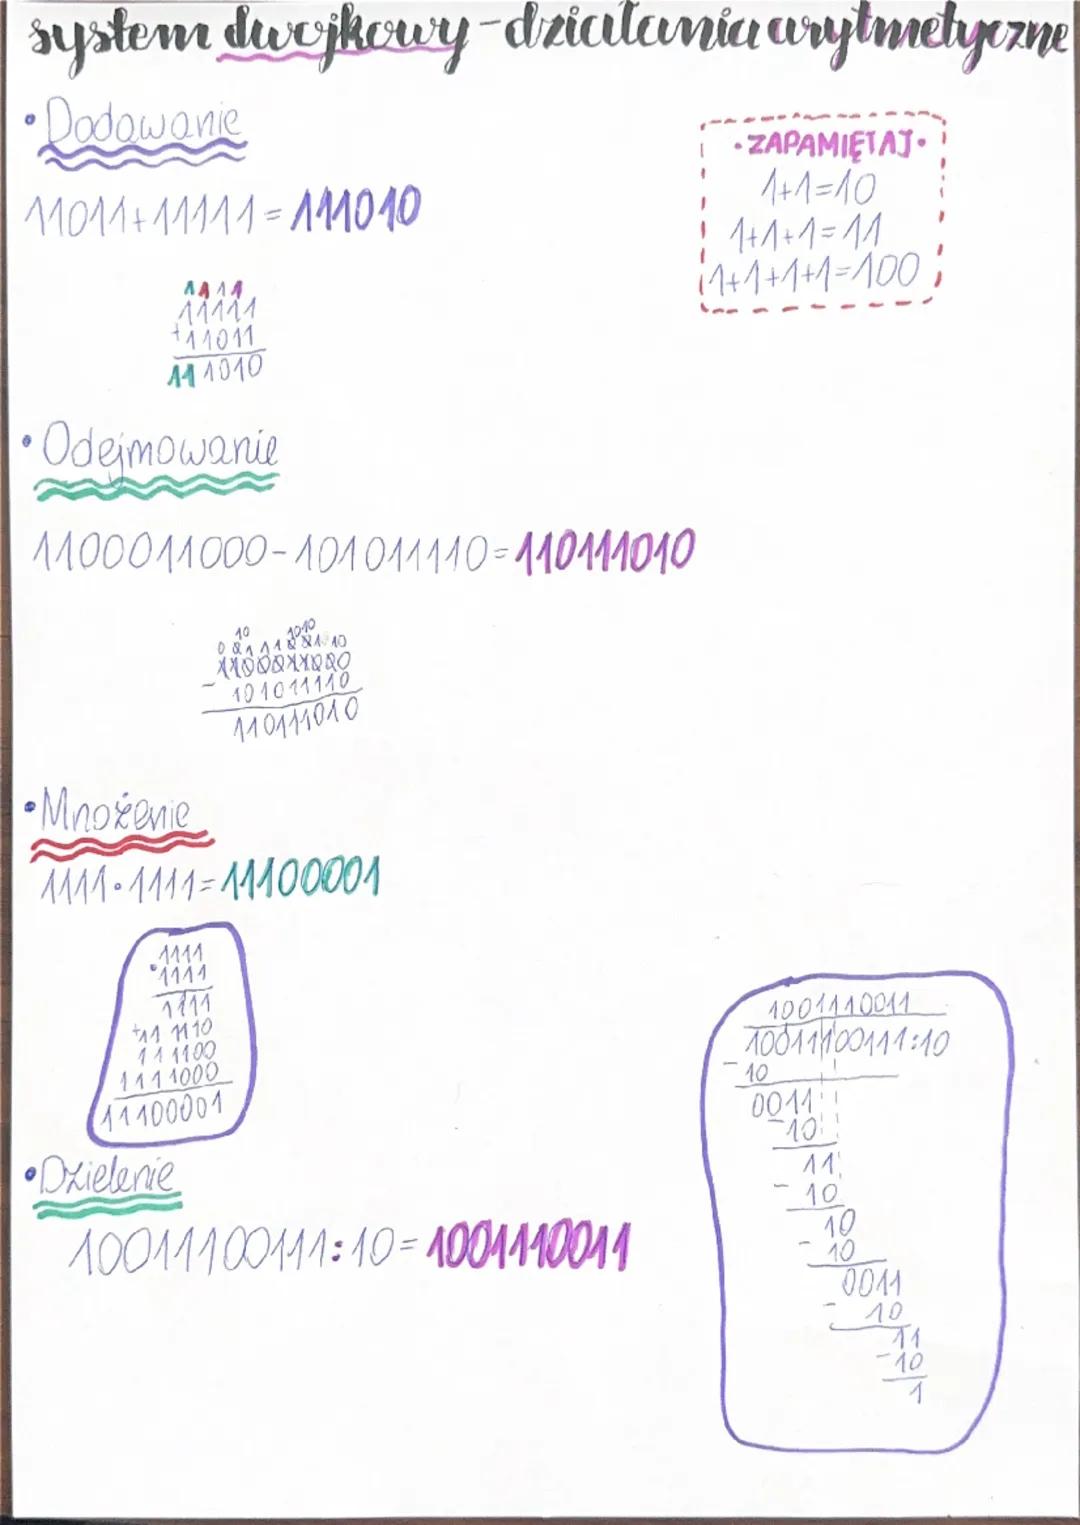 system dwójkowy - działania arytmetyczne
• Dodawanie
11011+11111=111010
1111
11111
+11011
111010
• ZAPAMIĘTAJ •
1+1=10
1+1+1=11
1+1+1+1=100
• Odejmowanie
1100011000-101011110=110111010
1100011000
- 101011110
110111010
• Mnożenie
1111•1111=11100001
1111
•1111
1111
+11110
111100
1111000
11100001
• Dzielenie
10011100111:10=1001110011
1001110011
10011100111:10
- 10
0011
- 10
11
- 10
10
- 10
0011
- 10
11
- 10
1